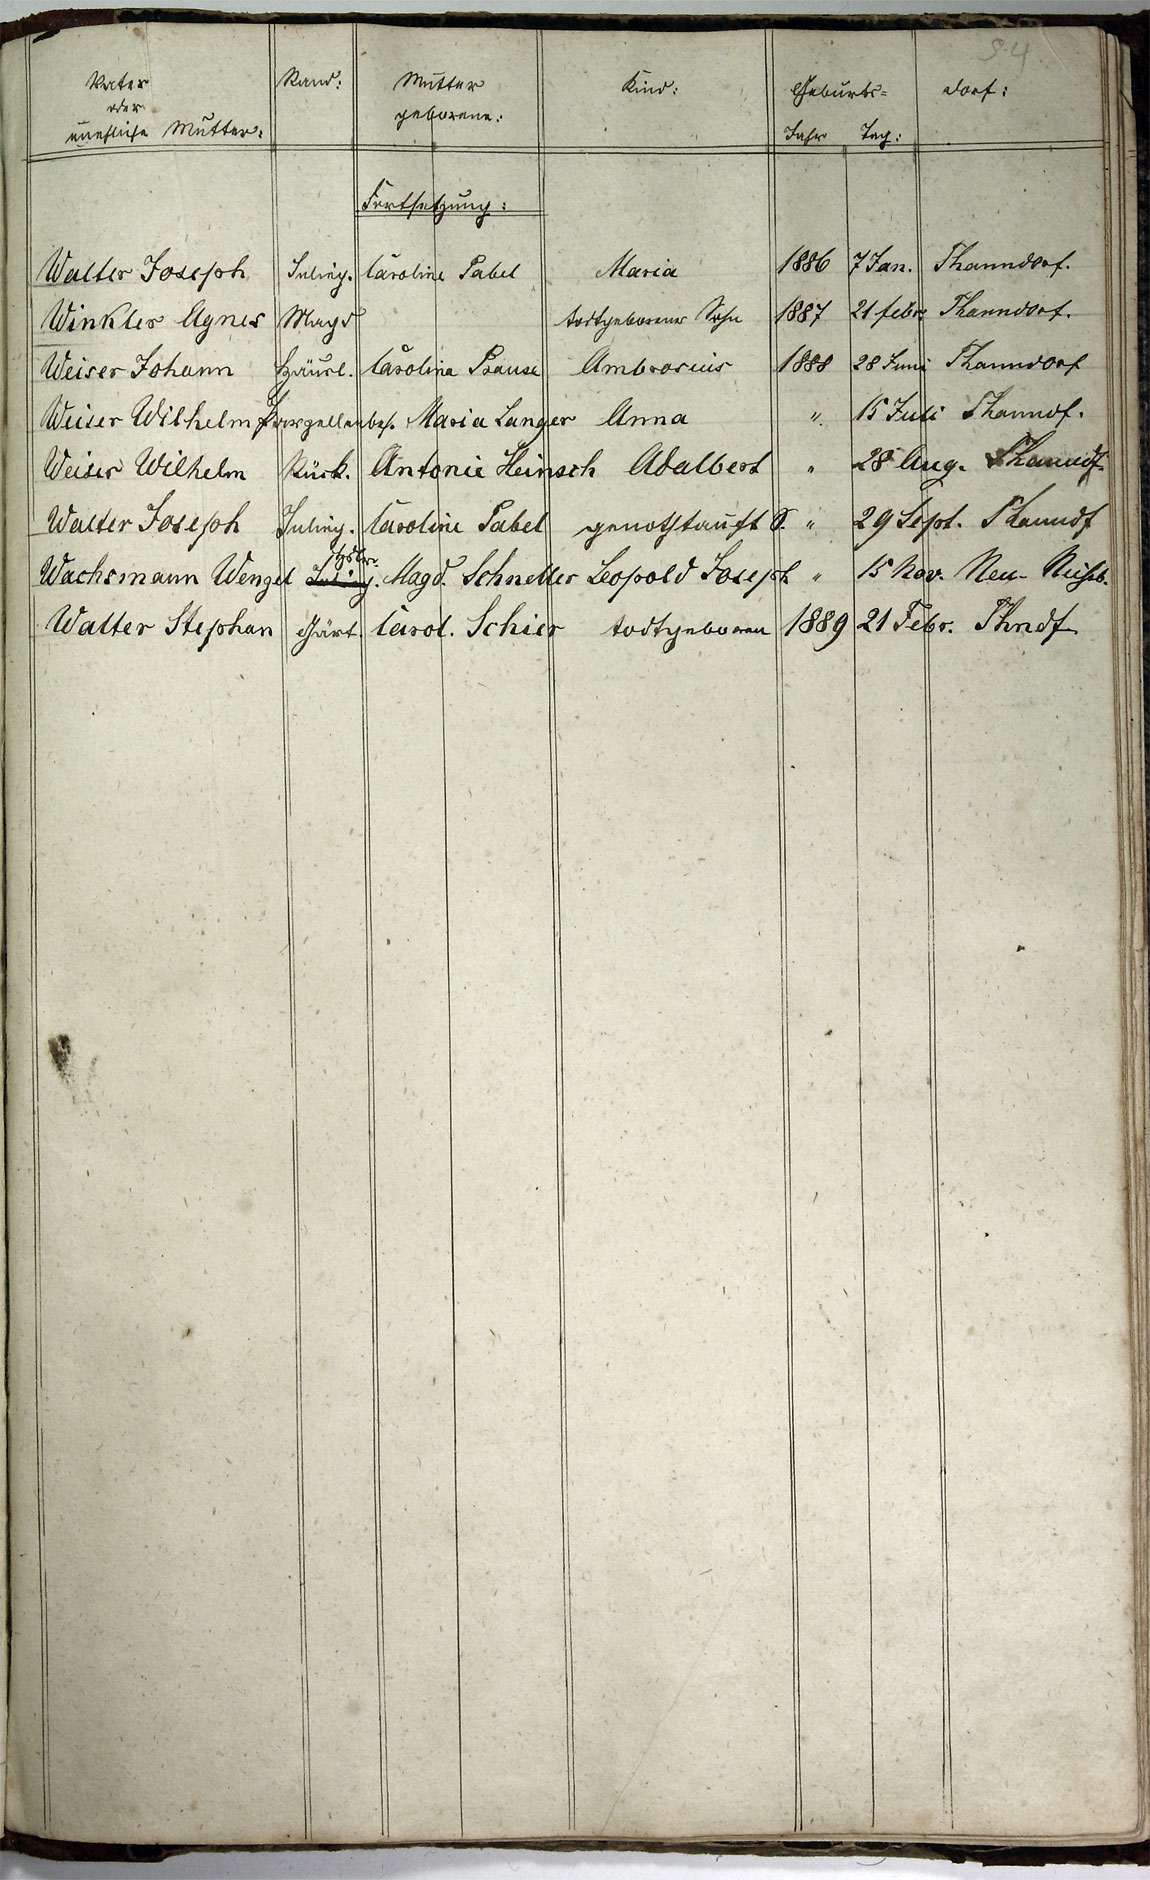 54
Vater Stand: Mutter Kind: Geburts= Dorf:
oder geborene:
uneheliche Mutter: Jahr Tag:
Fortsetzung:
Walter Joseph Inlieg. Caroline Pabel Maria 1886 7 Jan. Thanndorf.
Winkler Agnes Magd todtgeborener Sohn 1887 21 febr. Thanndorf.
Weiser Johann Häusl. Carolina Prause Ambrosius 1888 28 Juni Thanndorf
Weiser Wilhelm Parzellenbes. Maria Langer Anna " 15 Juli Thanndf.
Weiser Wilhelm Rück. Antonie Heinsch Adalbert " 28 Aug. Thanndf.
Walter Joseph Inlieg. Caroline Pabel genothtauft S. " 29 Sept. Thanndf
Wachsmann Wenzel Magd. Schneller Leopold Joseph " 15 Nov. Neu-
Walter Stephan Gärt. Carol. Schier todtgeboren 1889 21 Febr. Thndf